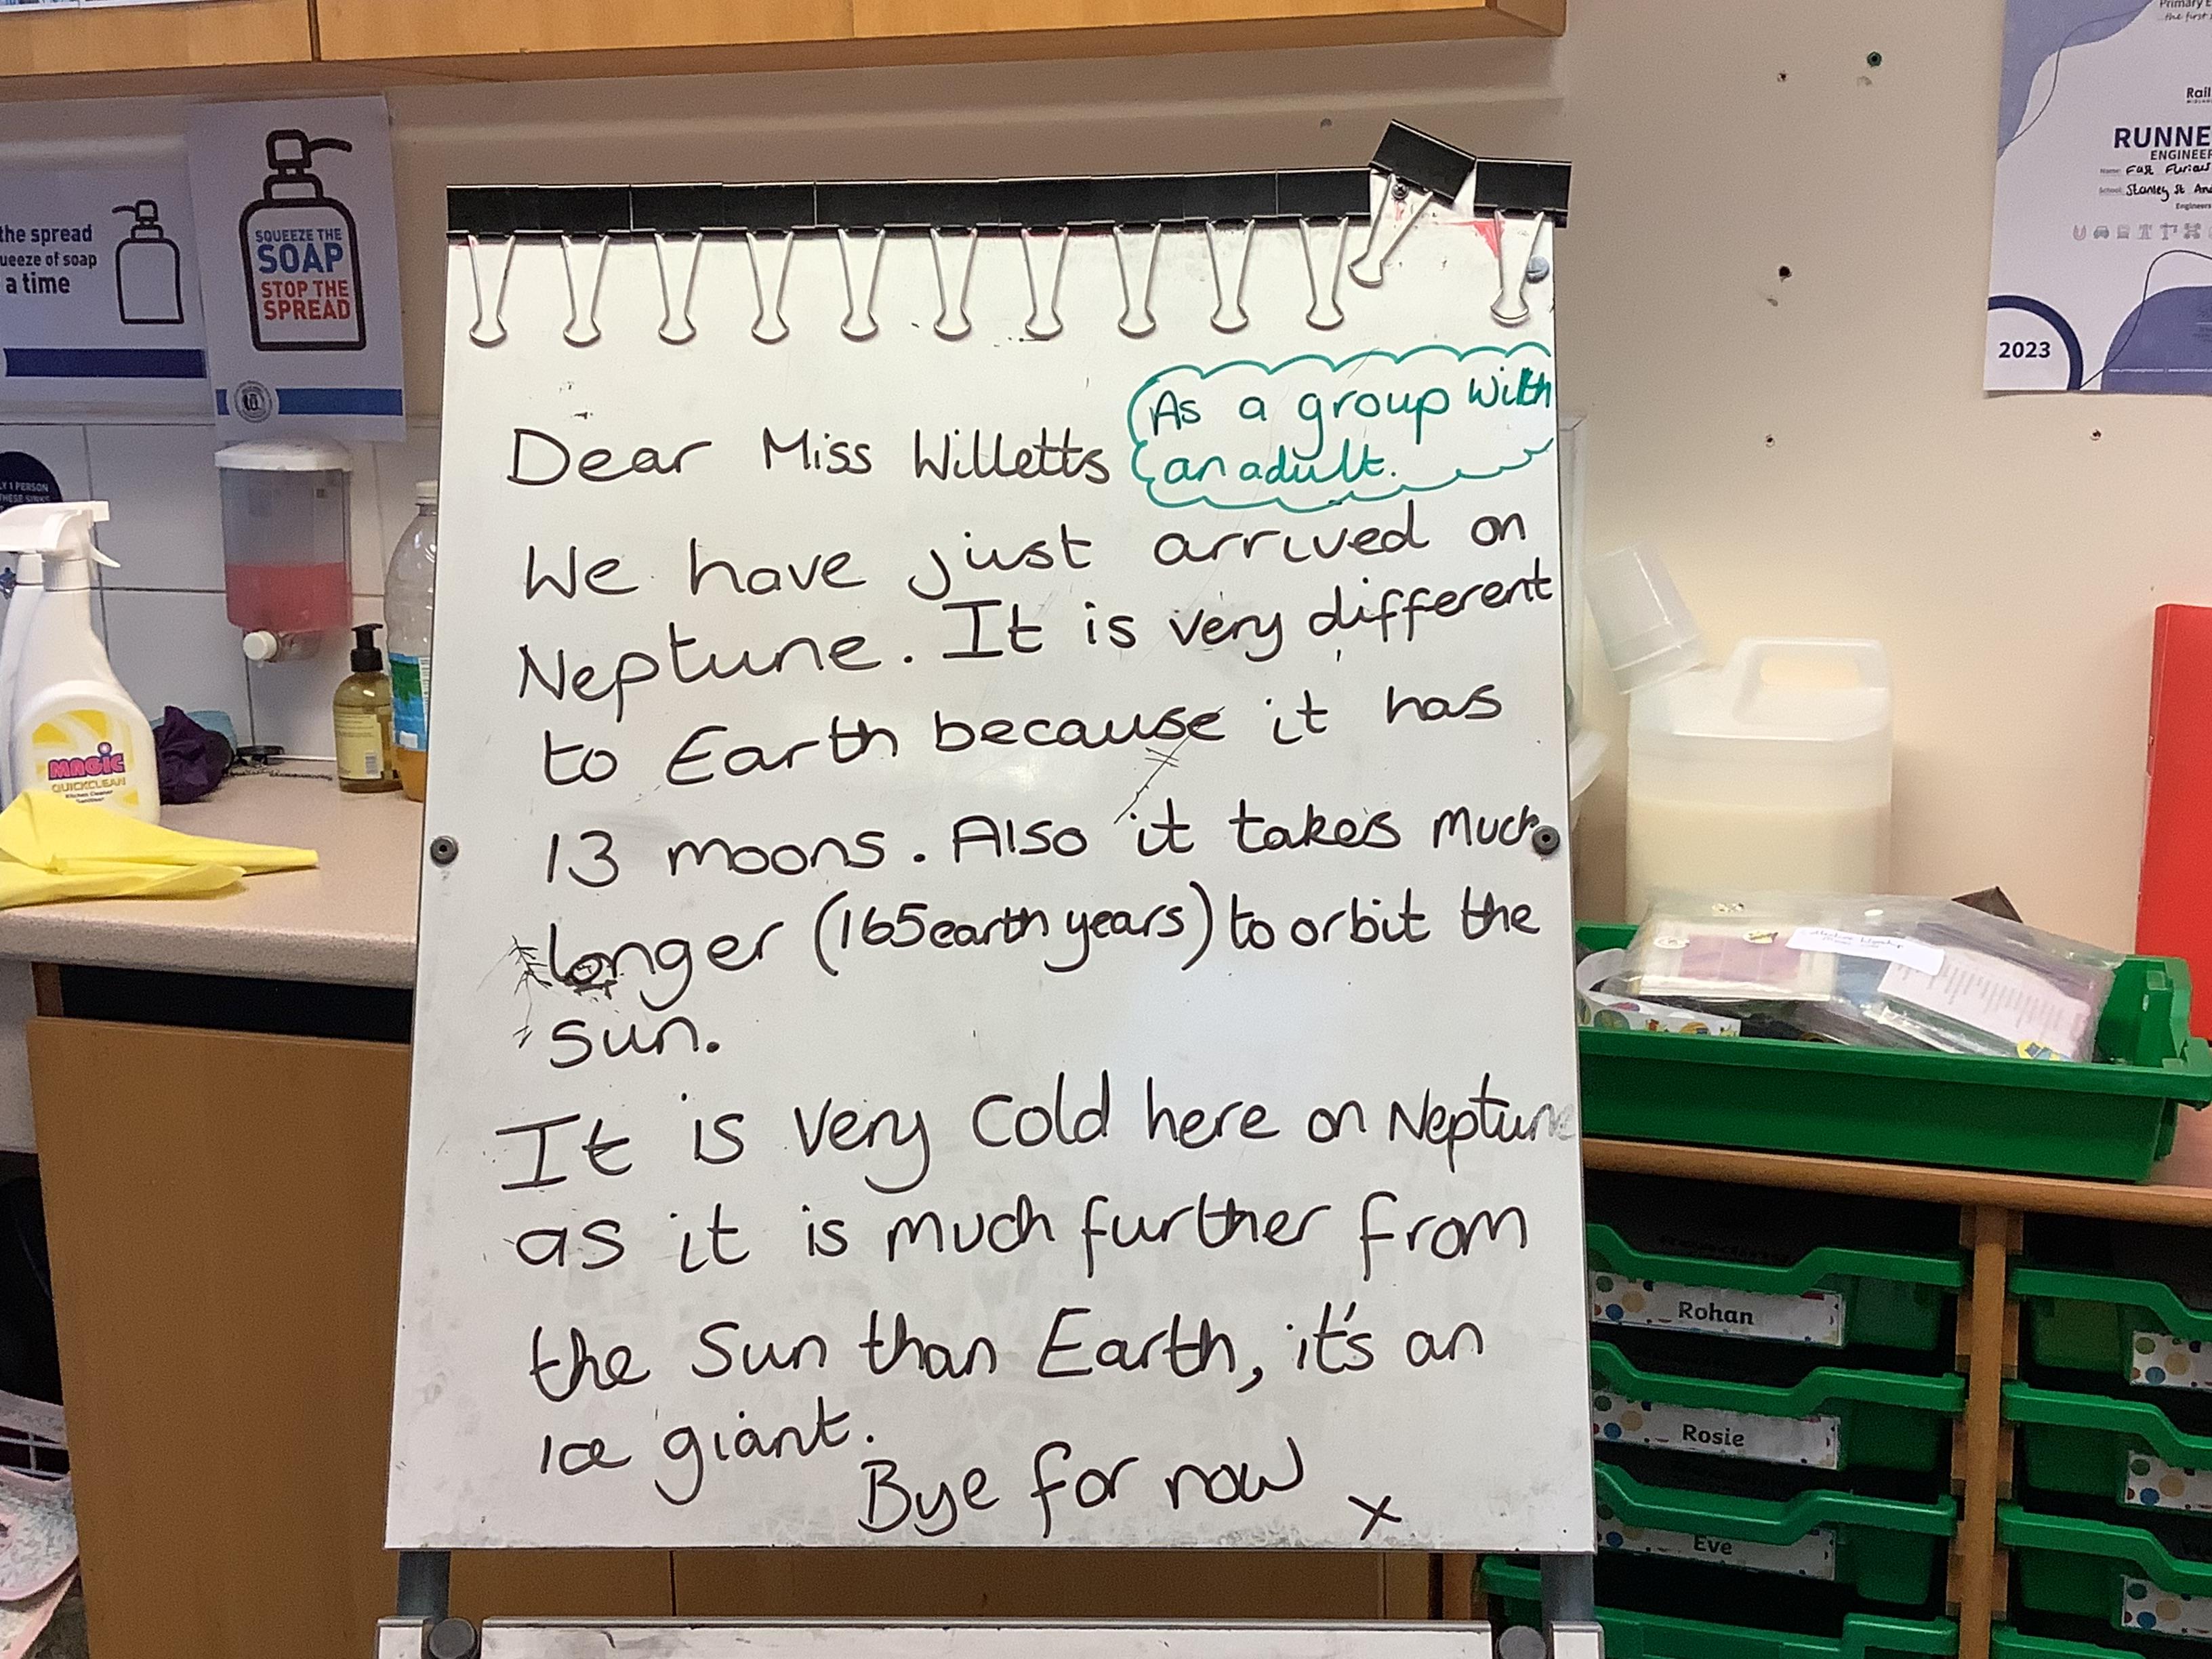 the spread
ueeze of soap
a time
SQUEEZE THE
SOAP
STOP THE
SPREAD
Y 1 PERSON
THESE SINKS
MAGIC
QUICKCLEAN
Kitchen Cleaner
Sanitiser
Dear Miss Willetts
As a group with
an adult.
We have just arrived on
Neptune. It is very different
to Earth because it has
13 moons. Also it takes much
longer (165 earth years) to orbit the
sun.
It is very cold here on Neptun
as it is much further from
the Sun than Earth, it's an
ice giant.
Bye for now x
Primary E
the first
Rail
RUNNE
ENGINEER
Name: Fast Furious
School: Stanley St And
Engineers
2023
Rohan
Rosie
Eve